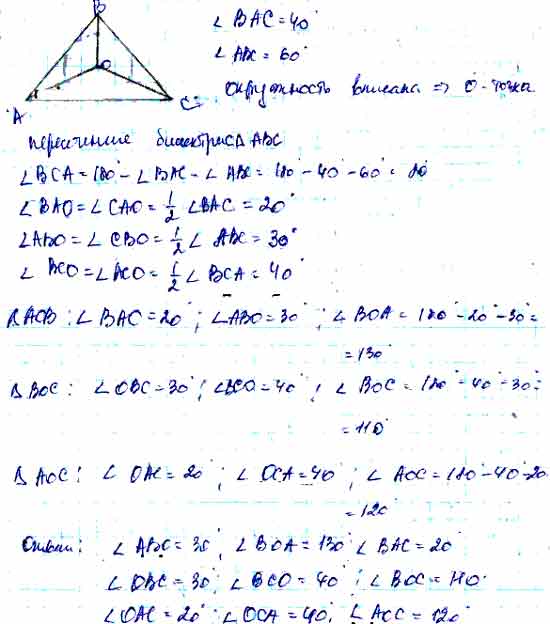 B
∠ BAC = 40°
∠ ABC = 60°
O
окружность вписана => O - точка
A
C
пересечение биссектрис Δ ABC
∠BCA = 180° - ∠BAC - ∠ABC = 180° - 40° - 60° = 80
∠BAO = ∠CAO = 1/2 ∠BAC = 20°
∠ABO = ∠CBO = 1/2 ∠ABC = 30°
∠BCO = ∠ACO = 1/2 ∠BCA = 40°
Δ AOB : ∠BAC = 20° ; ∠ABO = 30° ; ∠BOA = 180° - 20° - 30° =
= 130°
Δ BOC : ∠OBC = 30° ; ∠BCO = 40° ; ∠BOC = 180° - 40° - 30° =
= 110°
Δ AOC : ∠OAC = 20° ; ∠OCA = 40° ; ∠AOC = 180 - 40 - 20
= 120°
∠ABO = 30° ; ∠BOA = 130° ∠BAC = 20°
∠OBC = 30° ; ∠BCO = 40° ; ∠BOC = 110°
∠OAC = 20° ; ∠OCA = 40° ; ∠AOC = 120°